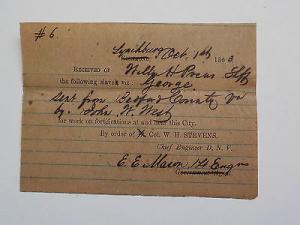 # 6.
Lynchburg Oct. 1st 1863
RECEIVED OF Willy H
the following slaves viz: George
sent from Bedford County Va
by John W. West
for work on fortifications at and near this City.
By order of Col. W. H. STEVENS,
Chief Engineer D. N. V.
E. E. Mason Engrs